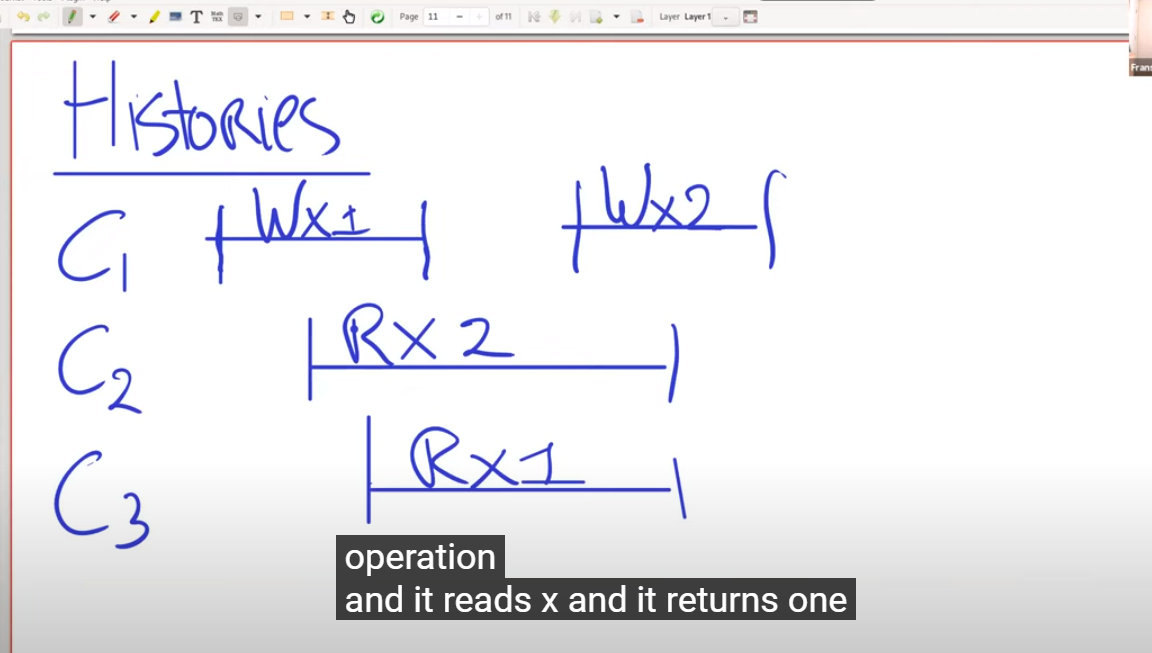 Page 11 of 11 Layer Layer 1
Frans
Histories
C1 Wx1 Wx2
C2 Rx2
C3 Rx1
operation
and it reads x and it returns one